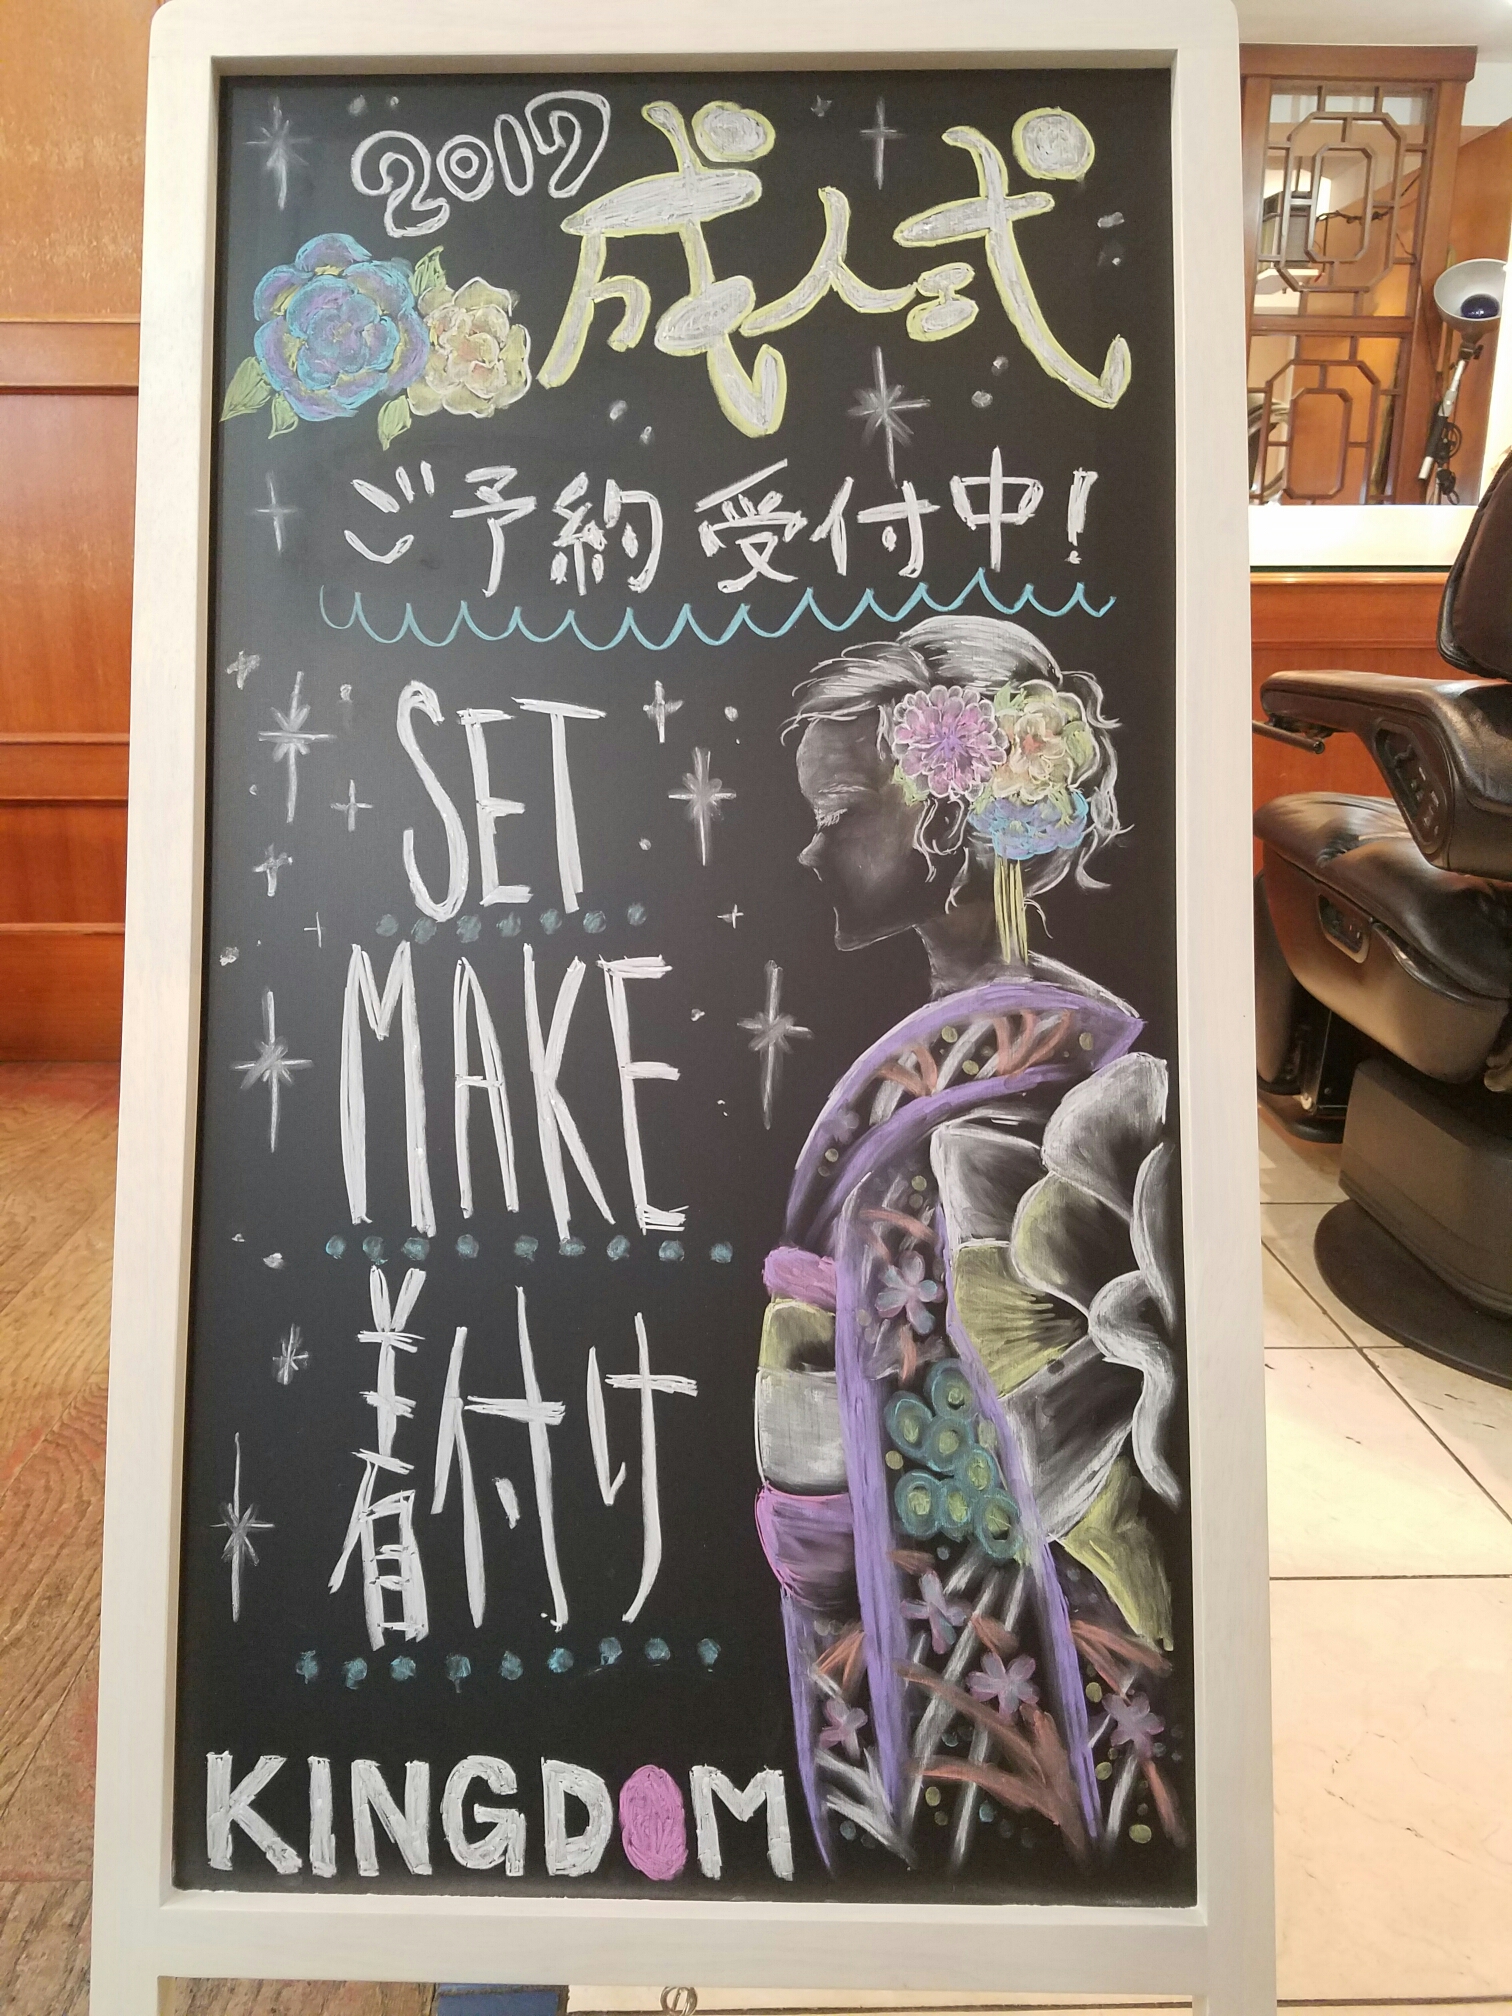 2017
成人式
ご予約 受付中!
SET
MAKE
着付け
KINGDOM